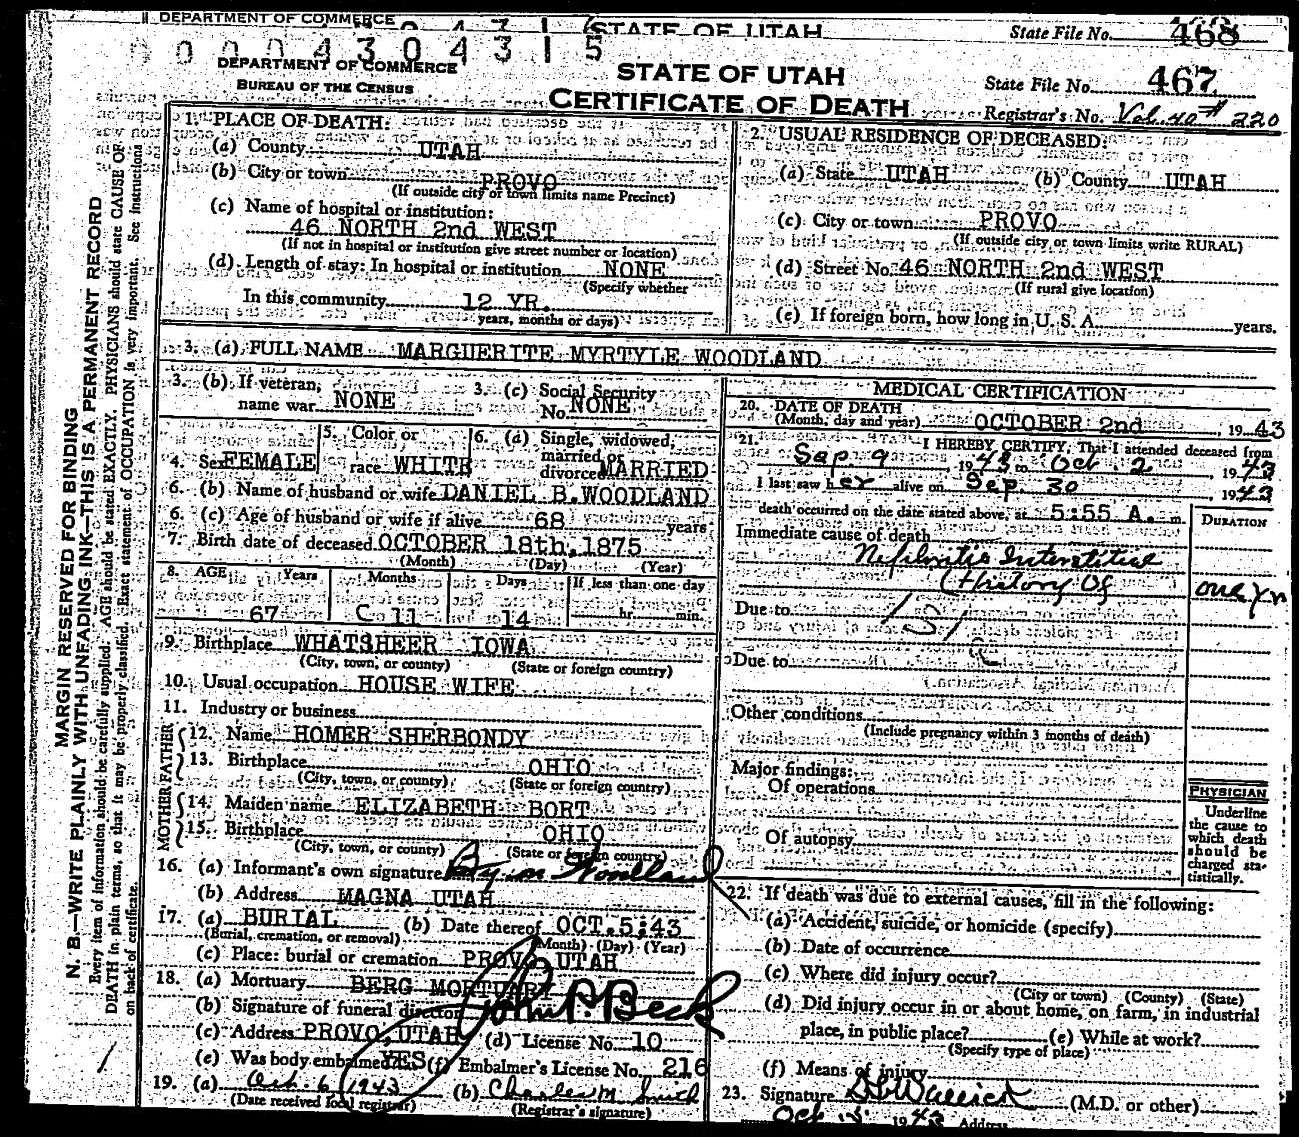 DEPARTMENT OF COMMERCE
STATE OF UTAH
State File No. 468
0004304315
DEPARTMENT OF COMMERCE
BUREAU OF THE CENSUS
STATE OF UTAH
CERTIFICATE OF DEATH
State File No. 467
Registrar's No. Vol. 40 # 220
MARGIN RESERVED FOR BINDING
N. B.—WRITE PLAINLY WITH UNFADING INK—THIS IS A PERMANENT RECORD
Every item of information should be carefully supplied. AGE should be stated EXACTLY. PHYSICIANS should state CAUSE OF
DEATH in plain terms, so that it may be properly classified. Exact statement of OCCUPATION is very important. See instructions
on back of certificate.
1. PLACE OF DEATH:
(a) County UTAH
(b) City or town PROVO
(If outside city or town limits name Precinct)
(c) Name of hospital or institution:
46 NORTH 2nd WEST
(If not in hospital or institution give street number or location)
(d) Length of stay: In hospital or institution NONE
(Specify whether
In this community 12 YR.
years, months or days)
2. USUAL RESIDENCE OF DECEASED:
(a) State UTAH (b) County UTAH
(c) City or town PROVO
(If outside city or town limits write RURAL)
(d) Street No. 46 NORTH 2nd WEST
(If rural give location)
(e) If foreign born, how long in U. S. A. years.
3. (a) FULL NAME MARGUERITE MYRTYLE WOODLAND
3. (b) If veteran, name war NONE
3. (c) Social Security No. NONE
4. Sex FEMALE
5. Color or race WHITE
6. (a) Single, widowed, married or divorced MARRIED
6. (b) Name of husband or wife DANIEL B. WOODLAND
6. (c) Age of husband or wife if alive 68 years
7. Birth date of deceased OCTOBER 18th, 1875
(Month) (Day) (Year)
8. AGE Years Months Days If less than one day
67 C 11 14 hr. min.
9. Birthplace WHATSHEER IOWA
(City, town, or county) (State or foreign country)
10. Usual occupation HOUSE WIFE
11. Industry or business
FATHER
12. Name HOMER SHERBONDY
13. Birthplace OHIO
(City, town, or county) (State or foreign country)
MOTHER
14. Maiden name ELIZABETH BORT
15. Birthplace OHIO
(City, town, or county) (State or foreign country)
16. (a) Informant's own signature Woodland
(b) Address MAGNA UTAH
17. (a) BURIAL (b) Date thereof OCT. 5;43
(Burial, cremation, or removal) (Month) (Day) (Year)
(c) Place: burial or cremation PROVO, UTAH
18. (a) Mortuary BERG MORTUARY
(b) Signature of funeral director John P. Beck
(c) Address PROVO, UTAH (d) License No. 10
(e) Was body embalmed? YES (f) Embalmer's License No. 216
19. (a) Oct. 6, 1943 (b) Charles M. Smith
(Date received local registrar) (Registrar's signature)
MEDICAL CERTIFICATION
20. DATE OF DEATH
(Month, day and year) OCTOBER 2nd, 1943
21. I HEREBY CERTIFY, That I attended deceased from
Sep. 9, 1943 to Oct. 2, 1943
I last saw her alive on Sep. 30, 1943
death occurred on the date stated above, at 5:55 A. m.
DURATION
Immediate cause of death
Nephritis Interstitial
(History of one yr
Due to
Due to
Other conditions
(Include pregnancy within 3 months of death)
Major findings:
Of operations
Of autopsy
PHYSICIAN
Underline
the cause to
which death
should be
charged sta-
tistically.
22. If death was due to external causes, fill in the following:
(a) Accident, suicide, or homicide (specify)
(b) Date of occurrence
(c) Where did injury occur?
(City or town) (County) (State)
(d) Did injury occur in or about home, on farm, in industrial
place, in public place? (e) While at work?
(Specify type of place)
(f) Means of injury
23. Signature (M.D. or other)
Oct 1943 Address